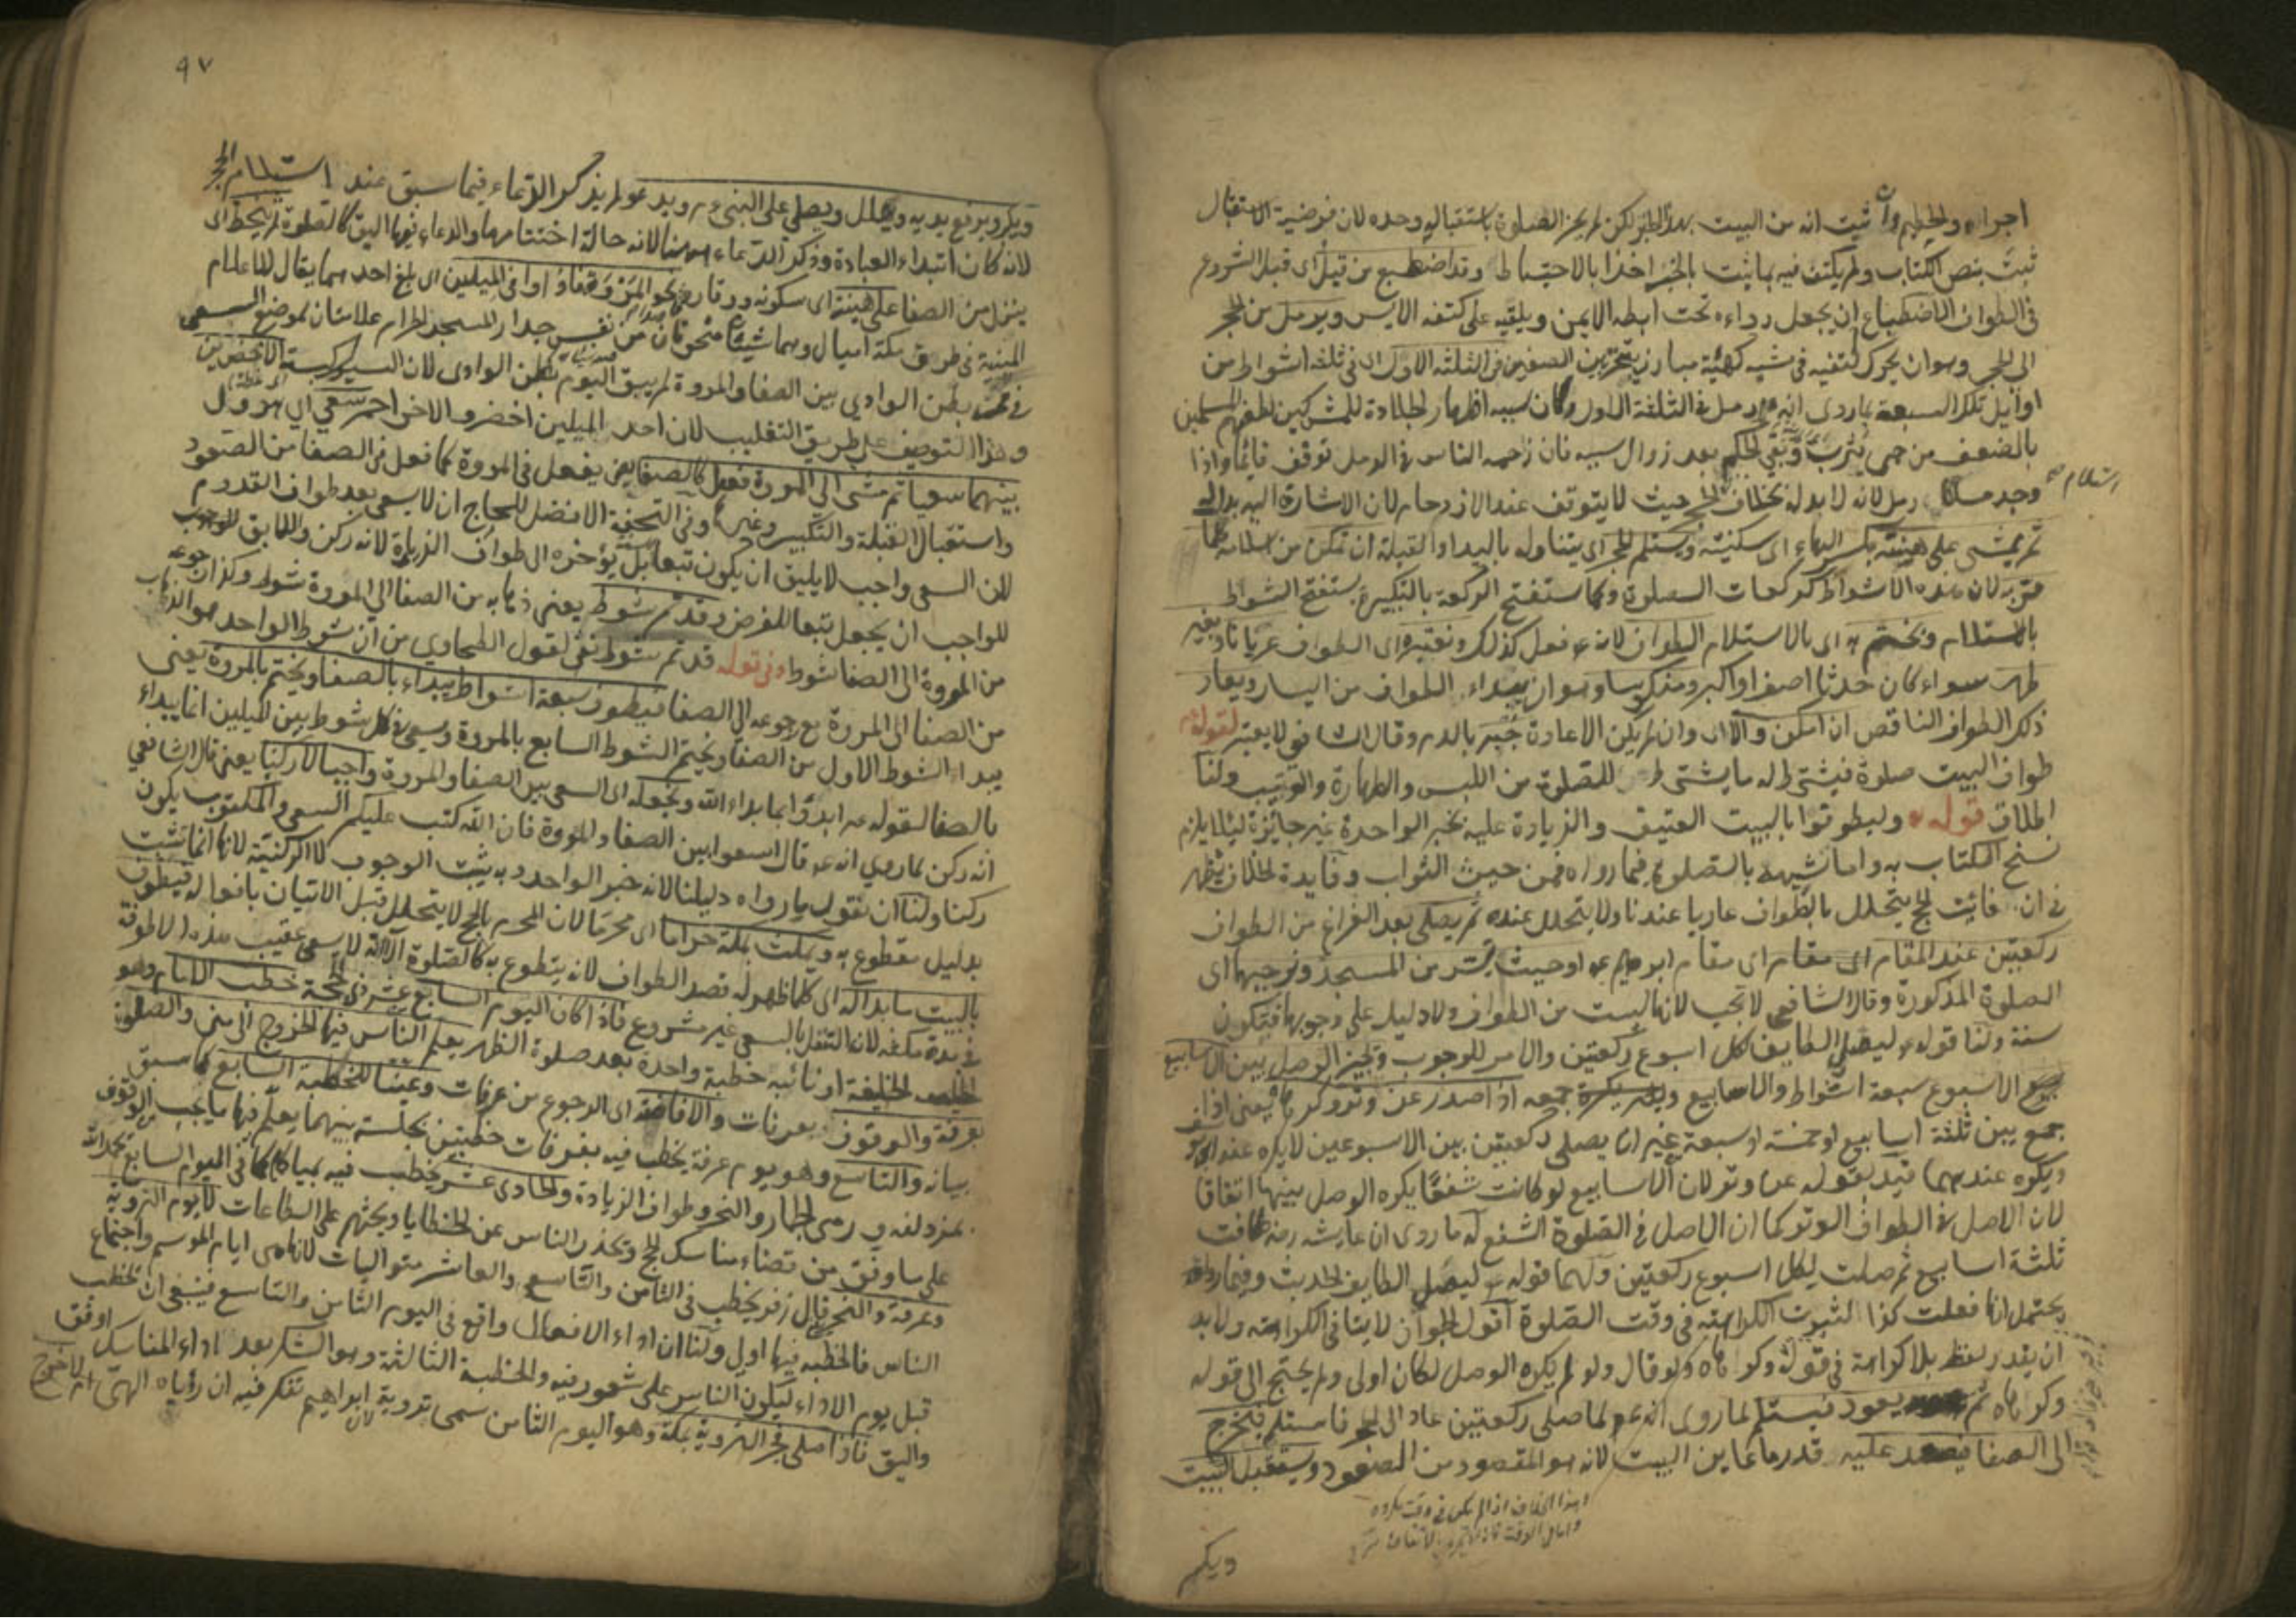 اجزاءه والحطيم وان ثبت انه من البيت بهذا الخبر لكن لم يجز الصلوة باستقباله وحده لان فرضية الاستقبال
ثبت بنص الكتاب ولم يكتف فيه بما ثبت بالخبر اخذا بالاحتياط وقد اضطبع من قبل اى قبل الشروع
فى الطواف الاضطباع ان يجعل رداءه تحت ابطه الايمن ويلقيه على كتفه الايسر ويرمل من الحجر
الى الحجر وهو ان يحرك كتفيه فى مشيه كهيئة مبارز يتبختر بين الصفين فى الثلثة الاول اى فى ثلثة اشواط من
اوايل تلك السبعة لما روى انه عم رمل فى الثلثة الاول وكان سببه اظهار الجلادة للمشركين لطعنهم المسلمين
بالضعف من حمى يثرب وبقى الحكم بعد زوال سببه فان زحمه الناس فى الرمل توقف قائما واذا
وجد مسلكا رمل لانه لا بد له بخلاف استلام الحجر حيث لا يتوقف عند الازدحام لان الاشارة اليه بدل له
ثم يمشى على هينته بكسر الهاء اى سكينته ويستلم الحجر اى يتناوله باليد او القبلة ان تمكن من استلامه كلما
مر به لان هذه الاشواط كركعات الصلوة وكما ستفتح الركعة بالتكبير يستفتح الشواط
بالاستلام ويختم به اى بالاستلام الطواف لانه عم فعل كذلك ونعتبره اى الطواف عريانا وبغير
طهر سواء كان حدثا اصغر او اكبر ومنكوسا وهو ان يبداء الطواف من اليسار ويعاد
ذلك الطواف الناقص ان امكن والا اى وان لم يكن الاعادة جبر بالدم وقال الشافعى لا يعتبر لقوله عم
طواف البيت صلوة فيشترط له ما يشترط للصلوة من اللبس والطهارة والترتيب ولنا
اطلاق قوله تع وليطوفوا بالبيت العتيق والزيادة عليه بخبر الواحدة غير جايزة ليئلا يلزم
نسخ الكتاب به واما شبهه بالصلوة فيما رواه فمن حيث الثواب وفايدة الخلاف يظهر
فى ان فائت الحج يتحلل بالطواف عاريا عندنا ولا يتحلل عنده ثم يصلى بعد الفراغ من الطواف
ركعتين عند المقام اى مقام ابراهيم عم او حيث تيسر من المسجد ونوجبها اى
الصلوة المذكورة وقال الشافعى لا تجب لانها ليست من الطواف ولا دليل على وجوبها فيكون
سنة ولنا قوله عم ليصلى الطايف لكل اسبوع ركعتين والامر للوجوب ونجيز الوصل بين الاسابيع
جمع الاسبوع سبعة اشواط والاسابيع جمعه اذا صدر عن وتر وكرها يعنى اذا
جمع بين ثلثة اسابيع او خمسة او سبعة غير ان يصلى ركعتين بين الاسبوعين لا يكره عند ابى يوسف
ويكره عندهما قيد بقوله عن وتر لان الاسابيع لو كانت شفعا يكره الوصل بينها اتفاقا
لان الاصل فى الطواف الوتر كما ان الاصل فى الصلوة الشفع له ما روى ان عايشه رضه طافت
ثلثة اسابيع ثم صلت لكل اسبوع ركعتين ولهما قوله عم ليصلى الطايف الحديث وفيما رواه
يحتمل انها فعلت كذا لثبوت الكراهته فى وقت الصلوة اقول الجواز لا ينافى الكراهته ولا بد
ان يقدر لفظ بلا كراهة فى قوله وكرهاه ولو قال ولو لم يكره الوصل لكان اولى ولم يحتج الى قوله
وكرهاه ثم يعود فيستلم لما روى انه عم لما صلى ركعتين عاد الى الحجر فاستلم فيخرج
الى الصفا فيصعد عليه قدر ما يعاين البيت لانه هو المقصود من الصعود ويستقبل البيت
وهذا الخلاف اذا لم يكن فى وقت مكروه
ويكبر
٩٧
ويكبر ويرفع يديه ويهلل ويصلى على النبى عم ويدعو لم يذكر الدعاء فيما سبق عند استلام الحجر
لانه كان ابتداء العبادة وذكر الدعاء ههنا لانه حالة اختتامها والدعاء فيها اليق كالصلوة ثم ينحط اى
ينزل من الصفا على هينته اى سكونه ووقاره نحو المروة فاذا وافى الميلين اى بلغ احدهما يقال للاعلام
المبنية فى طريق مكة اميال وهما شيئان منحوتان من نفس جدار المسجد الحرام علامتان لموضع السعى
فى بطن الوادى بين الصفا والمروة لم يبق اليوم بطن الوادى لان السيول كبسته الاخضرين
وهذا التوصيف على طريق التغليب لان احد الميلين اخضر والاخر احمر سعى اى هرول
بينهما سعيا ثم مشى الى المروة ففعل كالصفا يعنى يفعل فى المروة كما فعل فى الصفا من الصعود
واستقبال القبلة والتكبير وغيرها وفى التحفة الافضل للحاج ان لا يسعى بعد طواف القدوم
لان السعى واجب لا يليق ان يكون تبعا للسنة بل يؤخره الى طواف الزيارة لانه ركن واللايق للوجوب
للواجب ان يجعل تبعا للفرض وقد تم شوط يعنى ذهابه من الصفا الى المروة شوط وكذا رجوعه
من المروة الى الصفا شوط وفى قوله قد تم شوط نفى لقول الطحاوى من ان شوط الواحد هو الذهاب
من الصفا الى المروة مع رجوعه الى الصفا فيطوف سبعة اشواط يبداء بالصفا ويختم بالمروة يعنى
يبداء الشوط الاول من الصفا ويختم الشوط السابع بالمروة ويسعى فى كل شوط بين الميلين انما يبداء
بالصفا لقوله عم ابدؤا بما بداء الله ونجعله اى السعى بين الصفا والمروة واجبا لا ركنا يعنى قال الشافعى
انه ركن لما روى انه عم قال اسعوا بين الصفا والمروة فان الله كتب عليكم السعى والمكتوب يكون
ركنا ولنا ان نقول ما رواه دليلنا لانه خبر الواحد وبه يثبت الوجوب لا الركنية لانها انما تثبت
بدليل مقطوع به ويمكث بمكة حراما اى محرما لان المحرم بالحج لا يتحلل قبل الاتيان بافعاله فيطوف
بالبيت ما بدا له اى كلما ظهر له قصد الطواف لانه يتطوع به كالصلوة الا انه لا يسعى عقيب هذه الاطوفة
فى مدة مكثه لان التنفل بالسعى غير مشروع فاذا كان اليوم السابع من ذى الحجة خطب الامام وهو
الخليفة او نائبه خطبة واحدة بعد صلوة الظهر يعلم الناس فيها الخروج الى منى والصلوة
بعرفة والوقوف بعرفات والافاضة اى الرجوع من عرفات وعينا للخطبة السابع كما سبق
بيانه والتاسع وهو يوم عرفة يخطب فيه بعرفات خطبتين بجلسة بينهما يعلم فيها ما يجب من الوقوف
بمزدلفه و رمى الجمار والنحر وطواف الزيادة والحادى عشر يخطب فيه بمنا كما فى اليوم السابع يحمد الله
على ما وفق من قضاء مناسك الحج ويحذر الناس عن الخطايا ويحثهم على الطاعات لا يوم التروية
وعرفة والنحر قال زفر يخطب فى الثامن والتاسع والعاشر متواليات لانها هى ايام الموسم واجتماع
الناس فالخطبه فيها اولى ولنا ان اداء الافعال واقع فى اليوم الثامن والتاسع فينبغى ان يخطب
قبل يوم الاداء ليكون الناس على شعور فيه والخطبة الثالثة وهو الشكر بعد اداء المناسك اوفق
واليق فاذا صلى فجر التروية بمكة وهو اليوم الثامن سمى تروية لان ابراهيم تفكر فيه ان رؤياه الهى